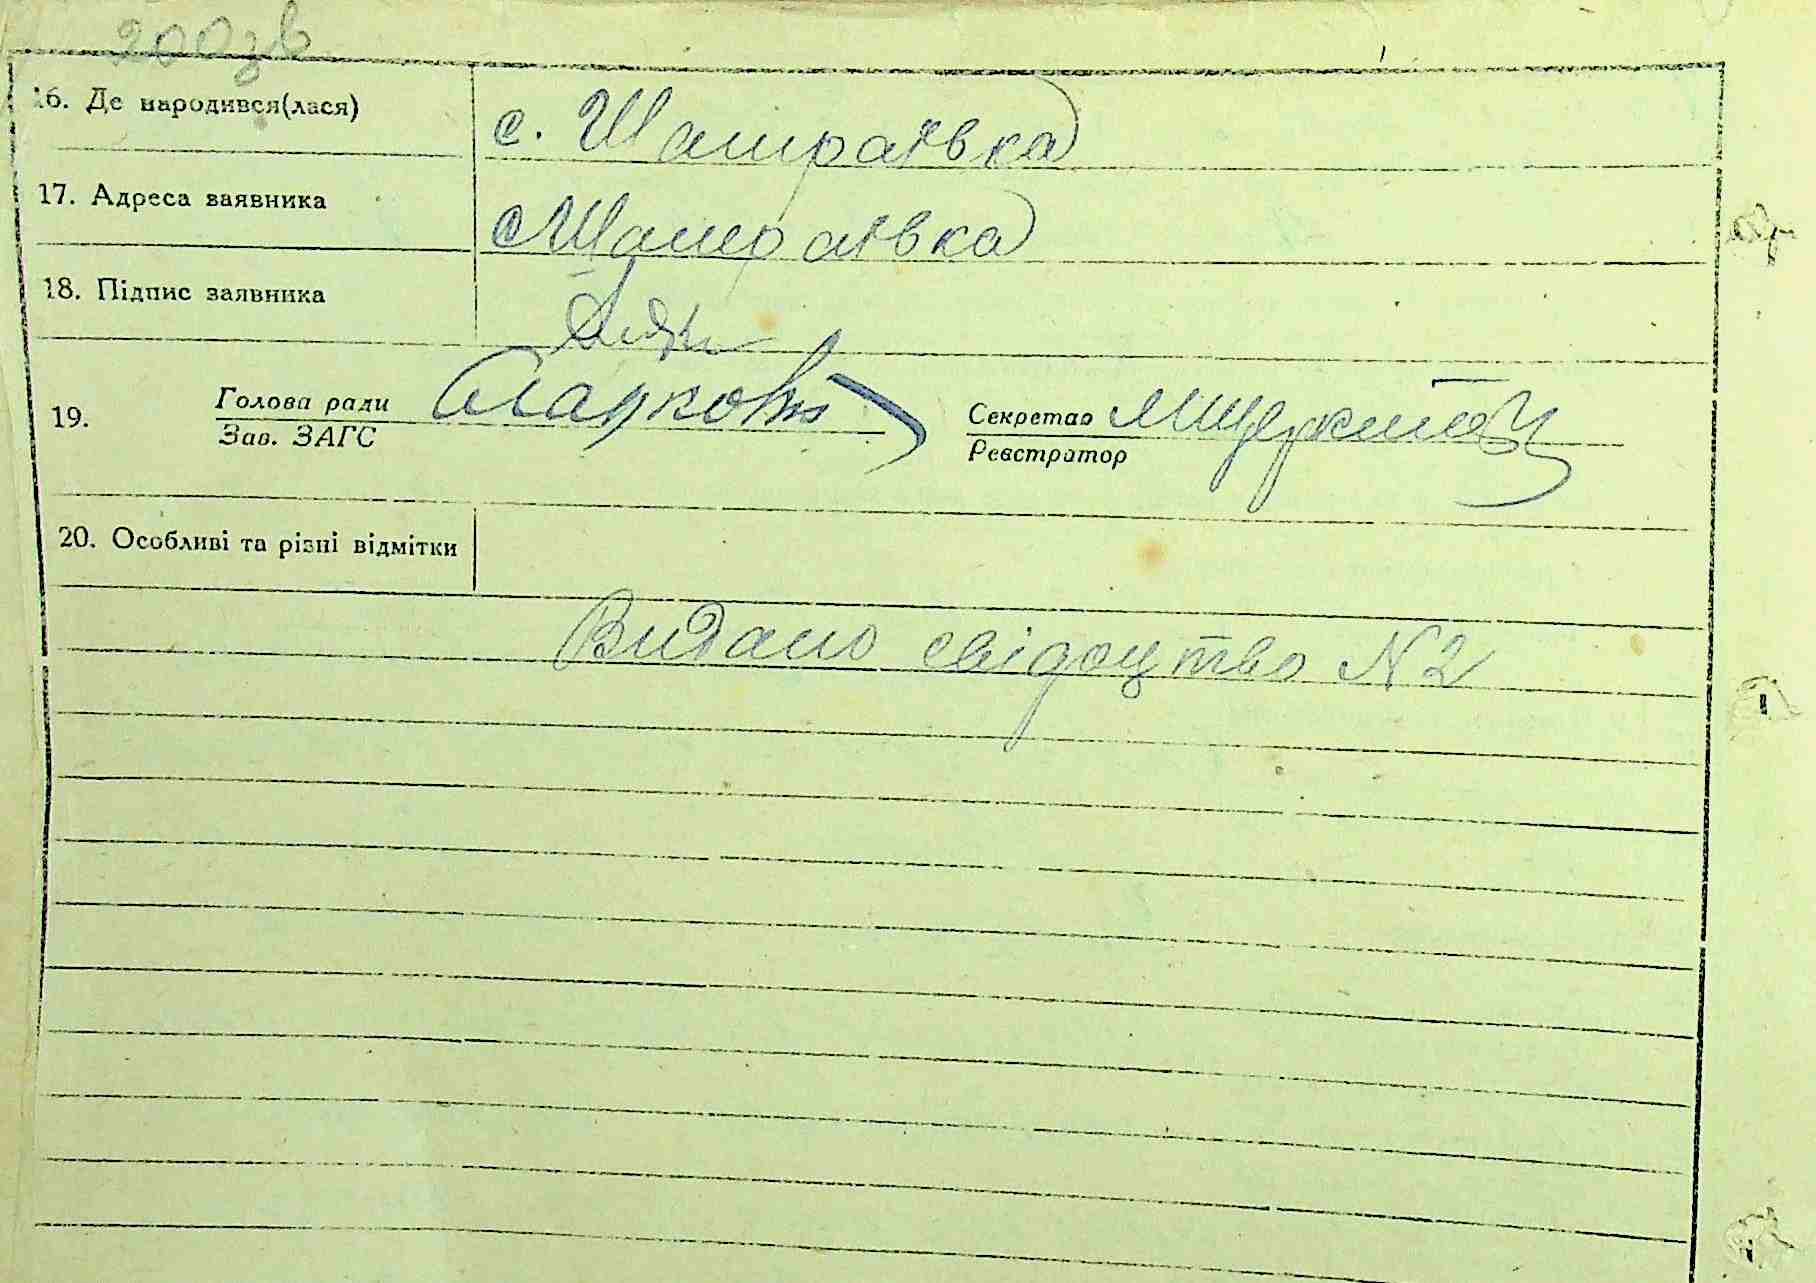 200зв
16. Де народився(лася) с. Шамраївка
17. Адреса заявника с Шамраївка
18. Підпис заявника
19. Голова ради Секретар
Зав. ЗАГС Реєстратор
20. Особливі та різні відмітки
Видано свідоцтво N 2